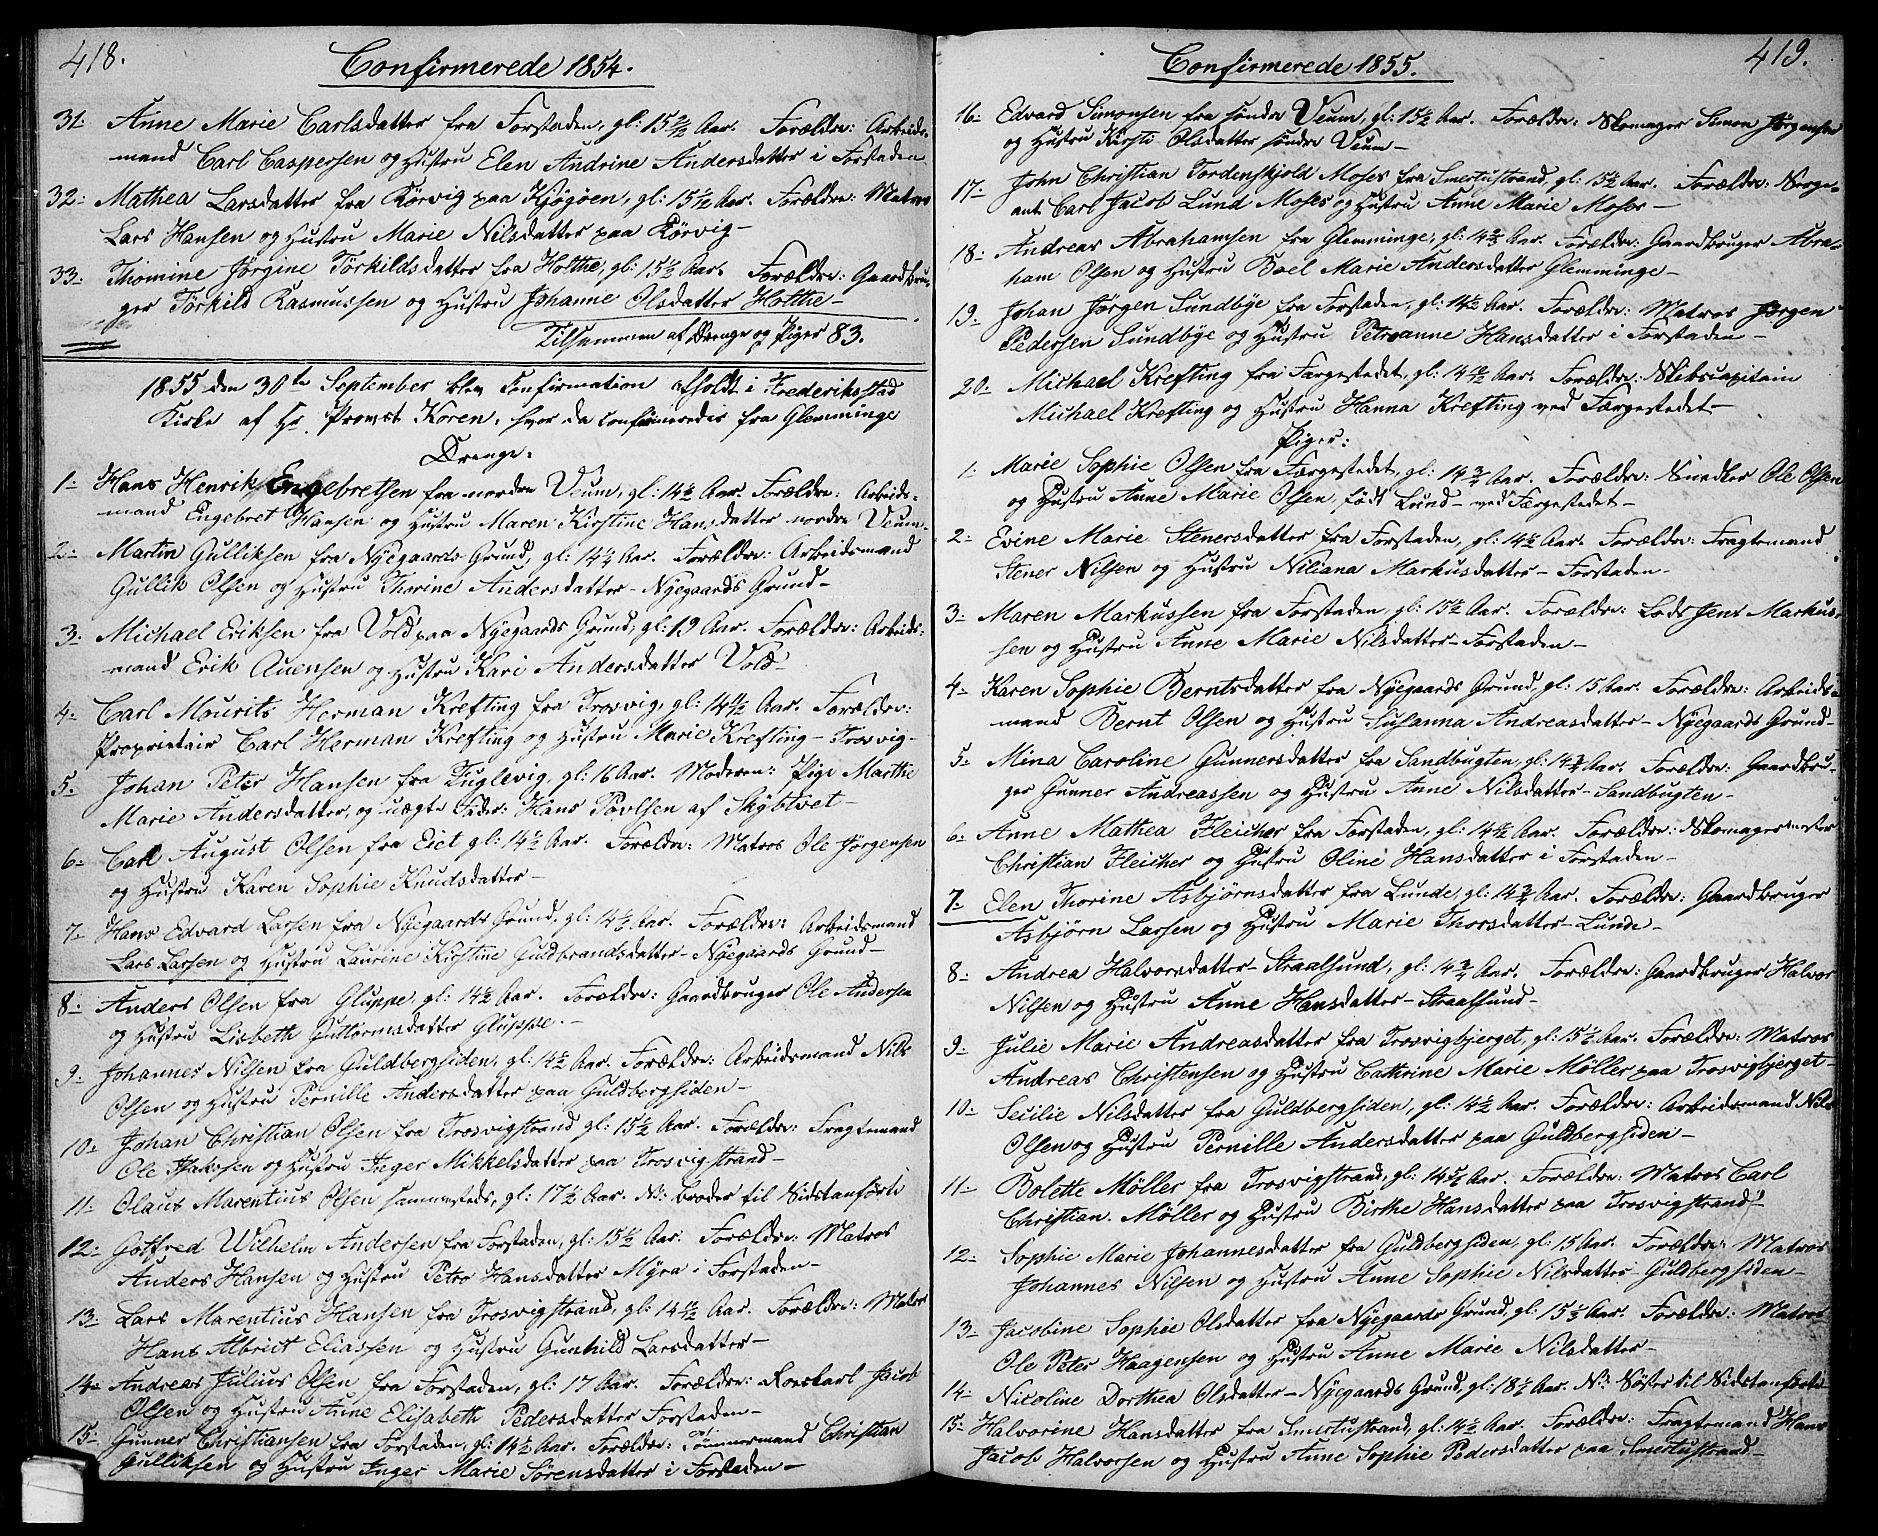 418.
Confirmerede 1854.
31. Anne Marie Carlsdatter fra Forstaden, gl: 15 Aar. Forældre: Arbeids-
mand Carl Caspersen og Hustru Elen Andrine Andersdatter i Forstaden
32. Mathea Larsdatter fra Rörvig paa Kjøgøen, gl: 15 Aar. Forældre: Matros
Lars Hansen og Hustru Marie Nilsdatter paa Rörvig -
33. Thomine Jørgine Törkildsdatter fra Holthe, gl: 15 Aar. Forældre: Gaardbru-
ger Törkild Rasmussen og Hustru Johanne Olsdatter Holthe -
Tilsammen af Drenge og Piger 83.
1855 den 30te September blev Confirmation afholdt i Frederiksstad
Kirke af Hr. Provst Koren, hvor da confirmeredes fra Glemminge
Drenge:
1- Hans Henrik Engebretsen fra nordre Veum, gl: 14 Aar. Forældre: Arbeids-
mand Engebret Hansen og Hustru Maren Kirstine Hansdatter nordre Veum-
2- Martin Gulliksen fra Nyegaards Grund, gl: 14 Aar. Forældre: Arbeidsmand
Gullik Olsen og Hustru Thorine Andersdatter - Nyegaards Grund -
3- Michael Eriksen fra Vold paa Nyegaards Grund, gl: 19 Aar. Forældre: Arbeids-
mand Erik Auensen og Hustru Kari Andersdatter Vold -
4- Carl Mourits Herman Krefting fra Trosvig, gl: 14 Aar. Forældre:
Proprietair Carl Herman Krefting og Hustru Marie Krefting - Trosvig -
5. Johan Peter Hansen fra Fuglevig, gl: 16 Aar. Moderen: Pige Marthe
Marie Andersdatter, og uægte Fader: Hans Povlsen af Skibtvet -
6- Carl August Olsen fra Eiet gl: 14 Aar. Forældre: Matros Ole Jørgensen
og Hustru Karen Sophie Knudsdatter -
7- Hans Edvard Larsen fra Nyegaards Grund, gl: 14 Aar. Forældre: Arbeidsmand
Lars Larsen og Hustru Laurine Kirstine Guldbrandsdatter - Nyegaards Grund -
8- Anders Olsen fra Gluppe, gl: 14 Aar. Forældre: Gaardbruger Ole Andersen
og Hustru Lisbeth Guttormsdatter Gluppe. -
9- Johannes Nilsen fra Guldbergsiden, gl: 14 Aar. Forældre: Arbeidsmand Nils
Olsen og Hustru Pernille Andersdatter paa Guldbergsiden -
10- Johan Christian Olsen fra Trosvigstrand gl: 15 Aar. Forældre: Fragtemand
Ole Isaksen og Hustru Inger Mikkelsdatter paa Trosvigstrand -
11- Olaus Marentius Olsen sammesteds, gl: 17 Aar. N: broder til Sidstanførte
12- Gotfred Wilhelm Andersen fra Forstaden, gl: 15 Aar. Forældre: Matros
Anders Hansen og Hustru Petra Hansdatter Myra i Forstaden -
13- Lars Marentius Hansen fra Trosvigstrand, gl: 14 Aar. Forældre: Matros
Hans Albrict Eliassen og Hustru Gunhild Larsdatter -
14- Andreas Julius Olsen fra Forstaden, gl: 17 Aar. Forældre: Roerkarl Jacob
Olsen og Hustru Anne Elisabeth Pedersdatter Forstaden -
15- Gunner Christiansen fra Forstaden, gl: 14 Aar. Forældre: Tömmermand Christian
Gulliksen og Hustru Inger Marie Sörensdatter i Forstaden -
419.
Confirmerede 1855.
16- Edvard Simonsen fra søndre Veum, gl: 15 Aar. Forældre: Skomager Simon Jørgensen
og Hustru Kirsti Olsdatter søndre Veum -
17- John Christian Tordenskjold Moses fra Smertustrand, gl: 15 Aar. Forældre: Serge-
ant Carl Jacob Lund Moses og Hustru Anne Marie Moses -
18- Andreas Abrahamsen fra Glemminge, gl: 14 Aar. Forældre: Gaardbruger Abra-
ham Olsen og Hustru Boel Marie Andersdatter Glemminge -
19- Johan Jørgen Sundbye fra Forstaden, gl: 14 Aar. Forældre: Matros Jørgen
Pedersen Sundbye og Hustru Petroanne Hansdatter i Forstaden -
20- Michael Krefting fra Færgestedet, gl: 14 Aar. Forældre: Skibscapitain
Michael Krefting og Hustru Hanna Krefting ved Færgestedet -
Piger:
1- Marie Sophie Olsen fra Færgestedet, gl: 14 Aar. Forældre: Snedker Ole Olsen
og Hustru Anne Marie Olsen, født Lund - ved Færgestedet -
2- Evine Marie Stenersdatter fra Forstaden, gl: 14 Aar. Forældre: Fragtemand
Stener Nilsen og Hustru Niliana Markusdatter - Forstaden -
3- Maren Markussen fra Forstaden, gl: 15 Aar. Forældre: Lods Jens Markus-
sen og Hustru Anne Marie Nilsdatter - Forstaden -
4- Karen Sophie Berntsdatter fra Nyegaards Grund, gl: 15 Aar. Forældre: Arbeids-
mand Bernt Olsen og Hustru Susanna Andreasdatter - Nyegaards Grund -
5- Mina Caroline Gunnersdatter fra Sandbugten, gl: 14 Aar. Forældre: Gaardbru-
ger Gunner Andreassen og Hustru Anne Nilsdatter - Sandbugten -
6- Anne Mathea Fleischer fra Forstaden, gl: 14 Aar. Forældre: Skomagermester
Christian Fleicher og Hustru Oline Hansdatter i Forstaden -
7- Elen Thorine Asbjørnsdatter fra Lunde, gl: 14 Aar. Forældre: Gaardbruger
Asbjørn Larsen og Hustru Marie Thorsdatter - Lunde -
8- Andrea Halvorsdatter - Straalsund, gl: 14 Aar. Forældre: Gaardbruger Halvor
Nilsen og Hustru Anne Hansdatter - Straalsund -
9- Julie Marie Andreasdatter fra Trosvigbjerget, gl: 15 Aar. Forældre: Matros
Andreas Christensen og Hustru Cathrine Marie Möller paa Trosvigbjerget -
10- Secilie Nilsdatter fra Guldbergsiden, gl: 14 Aar. Forældre: Arbeidsmand Nils
Olsen og Hustru Pernille Andersdatter paa Guldbergsiden -
11- Bolette Möller fra Trosvigstrand, gl: 14 Aar. Forældre: Matros Carl
Christian Möller og Hustru Birthe Hansdatter paa Trosvigstrand -
12- Sophie Marie Johannesdatter fra Guldbergsiden, gl: 15 Aar. Forældre: Matros
Johannes Nilsen og Hustru Anne Sophie Nilsdatter - Guldbergsiden -
13- Jacobine Sophie Olsdatter fra Nyegaards Grund, gl: 15 Aar. Forældre: Matros
Ole Peter Haagensen og Hustru Anne Marie Nilsdatter -
14- Nicoline Dorthea Olsdatter - Nyegaards Grund, gl: 18 Aar. N: Söster til Sidstanförte
15- Halvorine Hansdatter fra Smertustrand, gl: 14 Aar. Forældre: Fragtemand Hans
Jacob Halvorsen og Hustru Anne Sophie Pedersdatter paa Smertustrand -